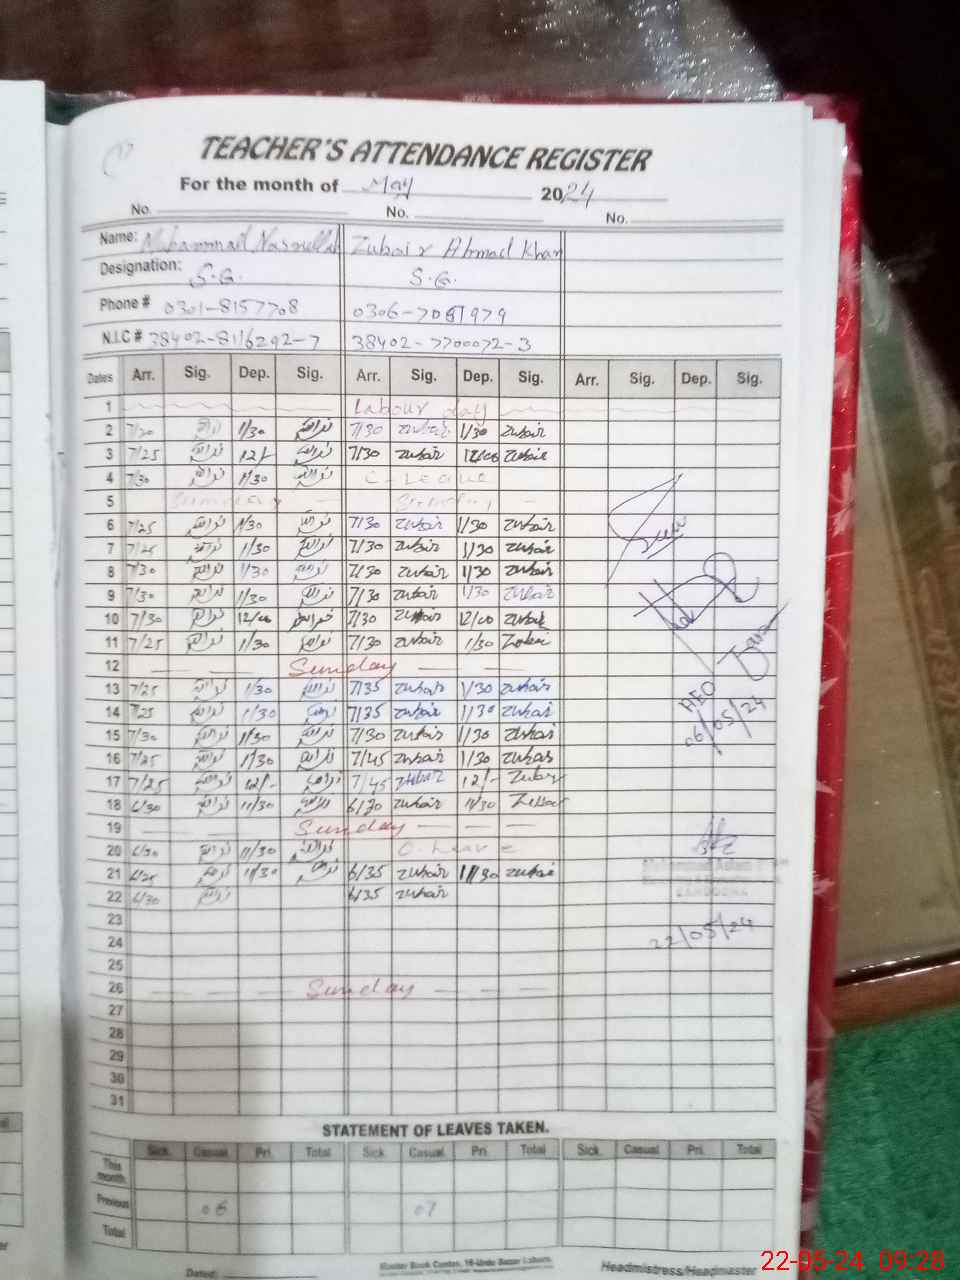 TEACHER'S ATTENDANCE REGISTER
For the month of May 2024
No. No. No.
Name: Muhammad Nasrullah Zubair Ahmad Khan
Designation: S.G. S.G.
Phone # 0301-8157708 0306-7081979
N.I.C # 38402-8116292-7 38402-7700072-3
Dates Arr. Sig. Dep. Sig. Arr. Sig. Dep. Sig. Arr. Sig. Dep. Sig.
1 Labour day
2 7/30 1/30 7/30 zubair 1/30 zubair
3 7/25 12/- 7/30 zubair 12/00 zubair
4 7/30 1/30 C-Leave
5 Sunday Sunday
6 7/25 1/30 7/30 zubair 1/30 zubair
7 7/25 1/30 7/30 zubair 1/30 zubair
8 7/30 1/30 7/30 zubair 1/30 zubair
9 7/30 1/30 7/30 zubair 1/30 zubair
10 7/30 12/00 7/30 zubair 12/00 zubair
11 7/25 1/30 7/30 zubair 1/30
12 Sunday
13 7/25 1/30 7/35 zubair 1/30 zubair
14 7/25 1/30 7/35 zubair 1/30 zubair
15 7/30 1/30 7/30 zubair 1/30 zubair
AEO
06/05/24
16 7/25 1/30 7/45 zubair 1/30 zubair
17 7/25 12/- 7/45 zubair 12/-
18 6/30 11/30 6/30 zubair 11/30
19 Sunday
20 6/30 11/30 C. Leave
21 6/25 11/30 6/35 zubair 11/30 zubair
22 6/30 6/35 zubair
23
22/05/24
24
25
26 Sunday
27
28
29
30
31
STATEMENT OF LEAVES TAKEN.
Sick. Casual Pri. Total Sick. Casual Pri. Total Sick. Casual Pri. Total
This month.
Previous 06 07
Total
Dated: Headmistress/Headmaster
22-05-24 09:28